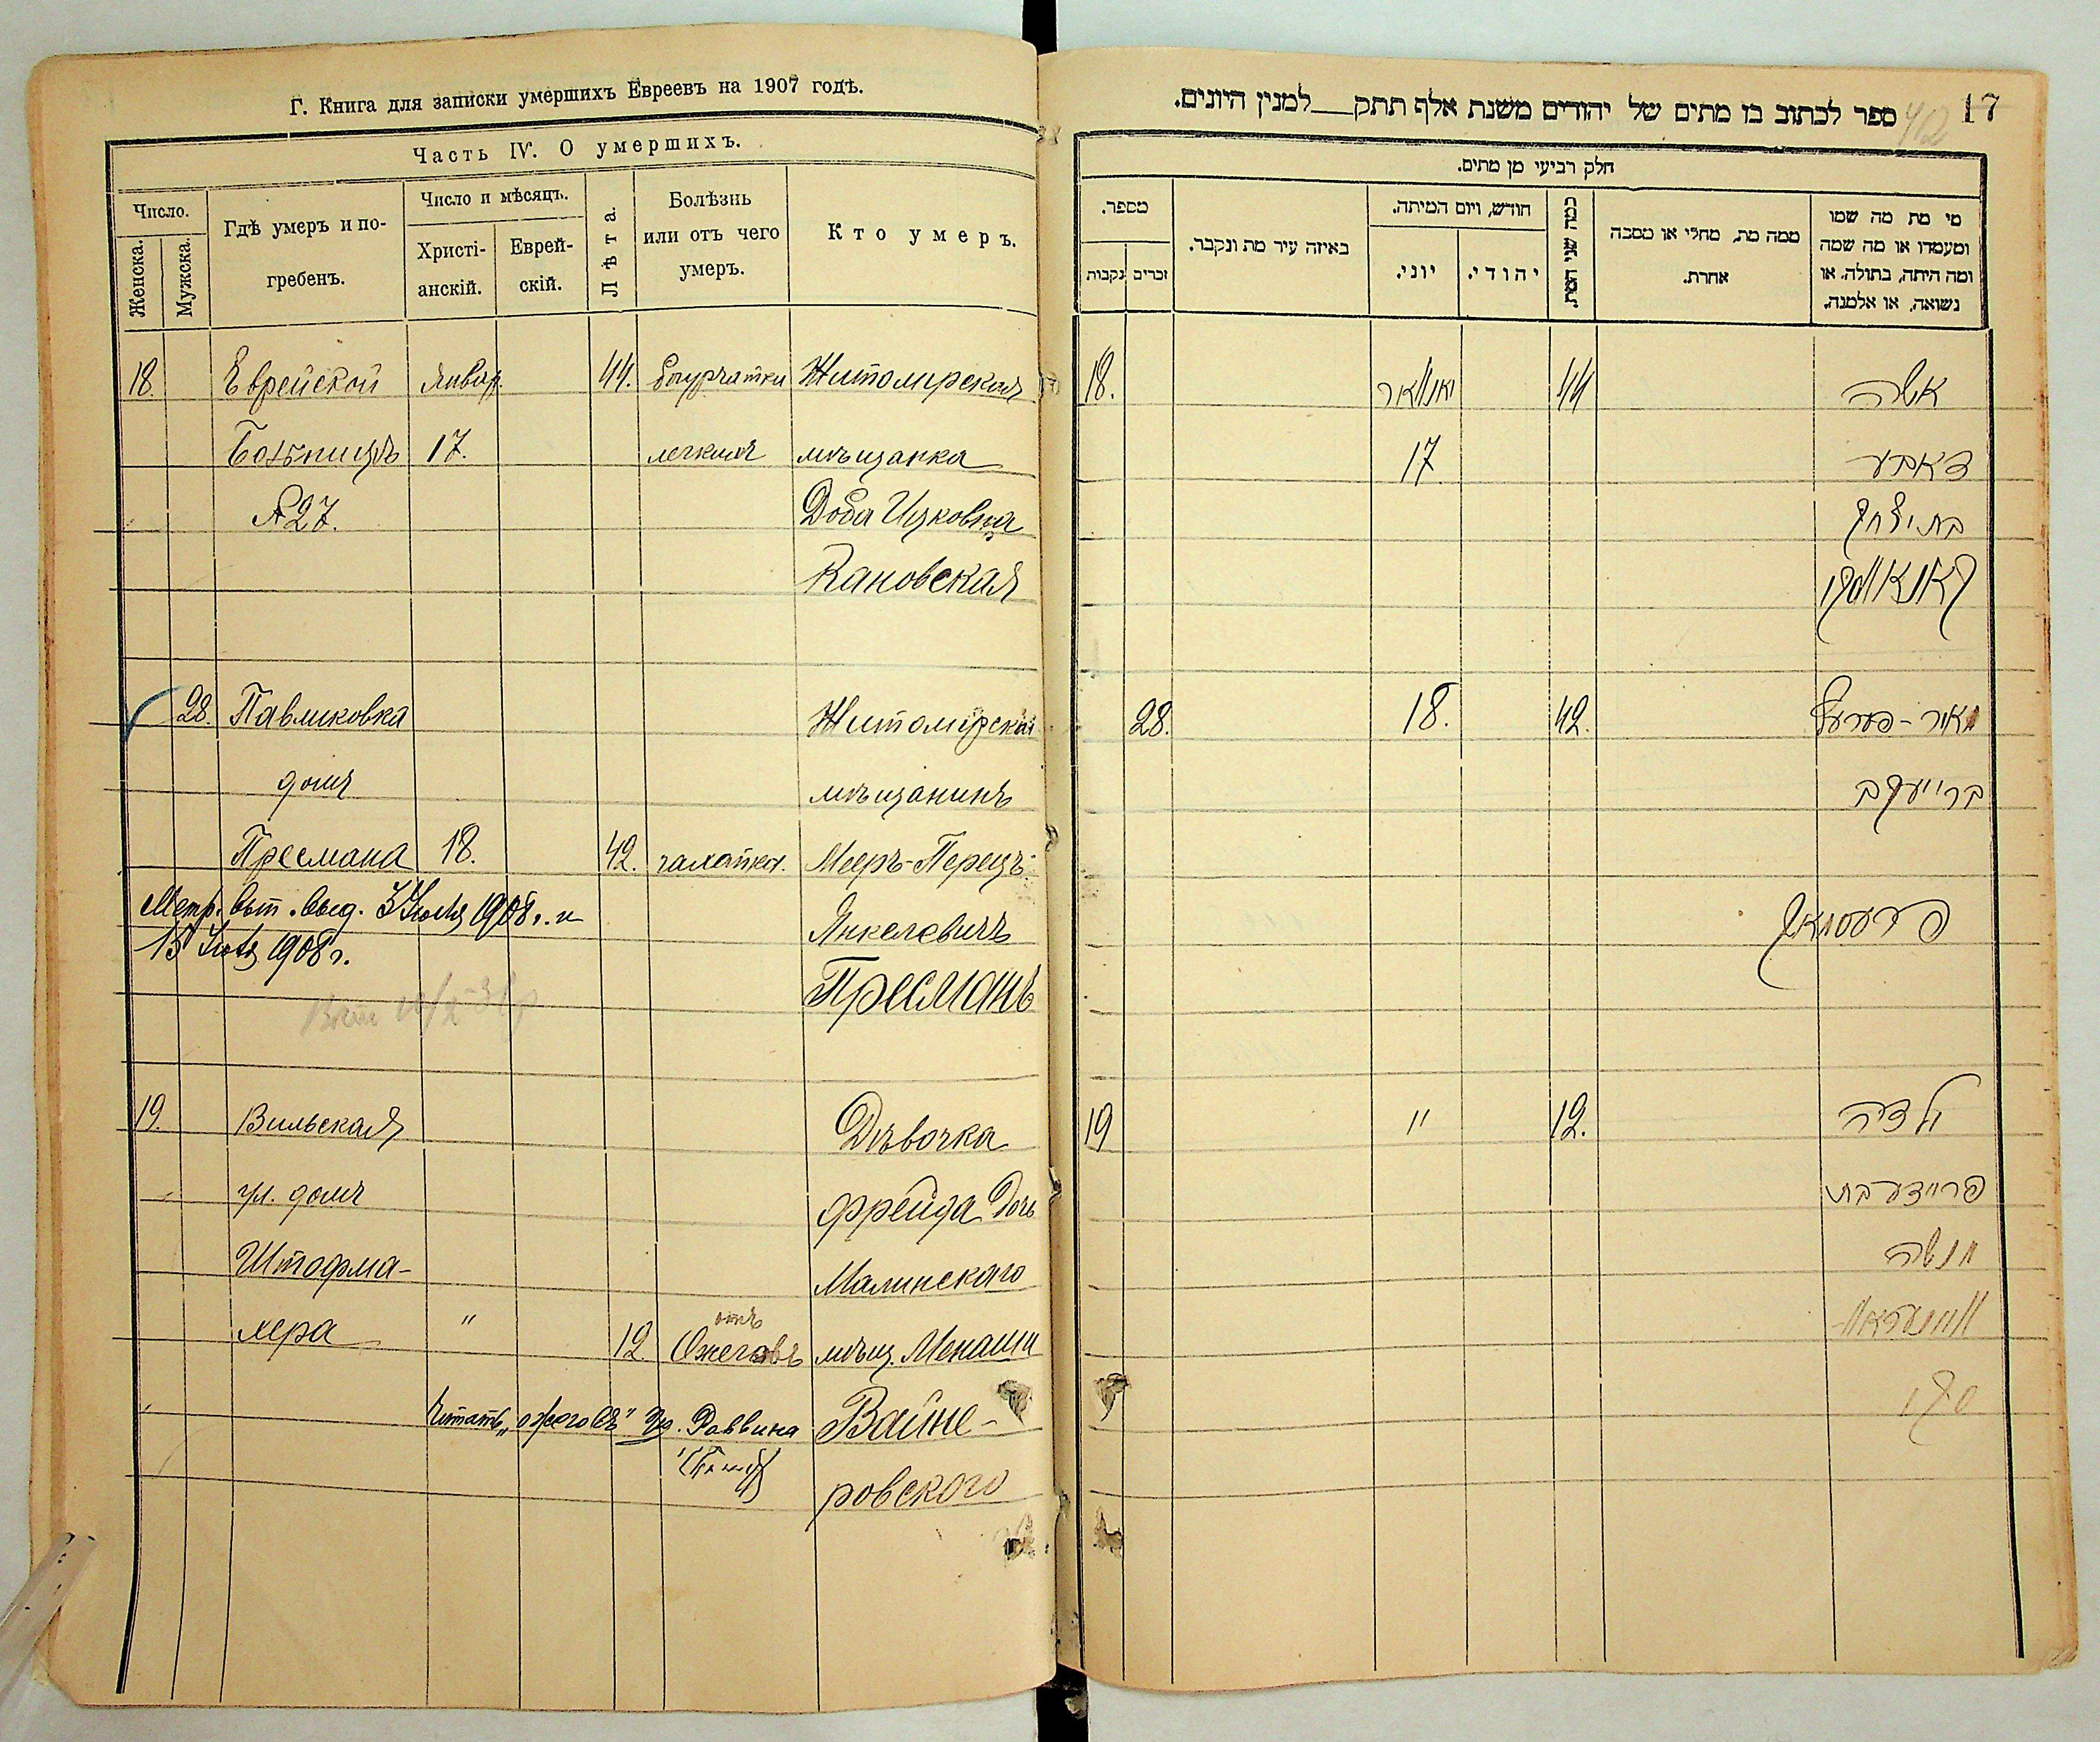 Г. Книга для записки умершихъ Евреевъ на 1907 годѣ.
Часть IV. О умершихъ.
Число.
Женска.
Мужска.
Гдѣ умеръ и по-
гребенъ.
Число и мѣсяцъ.
Христі-
анскій.
Еврей-
скій.
Лѣта.
Болѣзнь
или отъ чего
умеръ.
Кто умеръ.
18. Еврейской Январ. 44. Бугорчатки Житомирская
Больницѣ 17. легкихъ мѣщанка
№27. Доба Ицковна
Кановская
28. Павликовка Житомирскій
домъ мѣщанинъ
Пресмана 18. 42. чахотка. Мееръ-Перецъ-
Метр. вып. выд. 3 Іюля 1908 г. и Янкелевичъ
15 Іюля 1908 г.
Пресманъ
19. Вильская Дѣвочка
ул. домъ Фрейда Дочь
Штофма- Малинскаго
хера " 12 отъ Ожеговъ мѣщ. Менаши
Читать „ожоговъ" Раввина Вайне-
ровского
17
ספר לכתוב בו מתים של יהודים משנת אלף תתק__למנין היונים.
חלק רביעי מן מתים.
מי מת מה שמו
ומעמדו או מה שמה
ומה היתה, בתולה, או
נשואה, או אלמנה.
ממה מת, מחלי או מסבה
אחרת.
כמה שני המת.
חודש, ויום המיתה.
יהודי.
יוני.
באיזה עיר מת ונקבר.
מספר.
זכרים
נקבות
אשה 44 יאנואר 18.
דאבע 17
בת יצחק
קאנאווסקי
מאיר-פערעץ 42. 18. 28.
בר יעקב
פרעסמאן
ילדה 12. " 19
פריידע בת
מנשה
וויינעראוו-
סקי